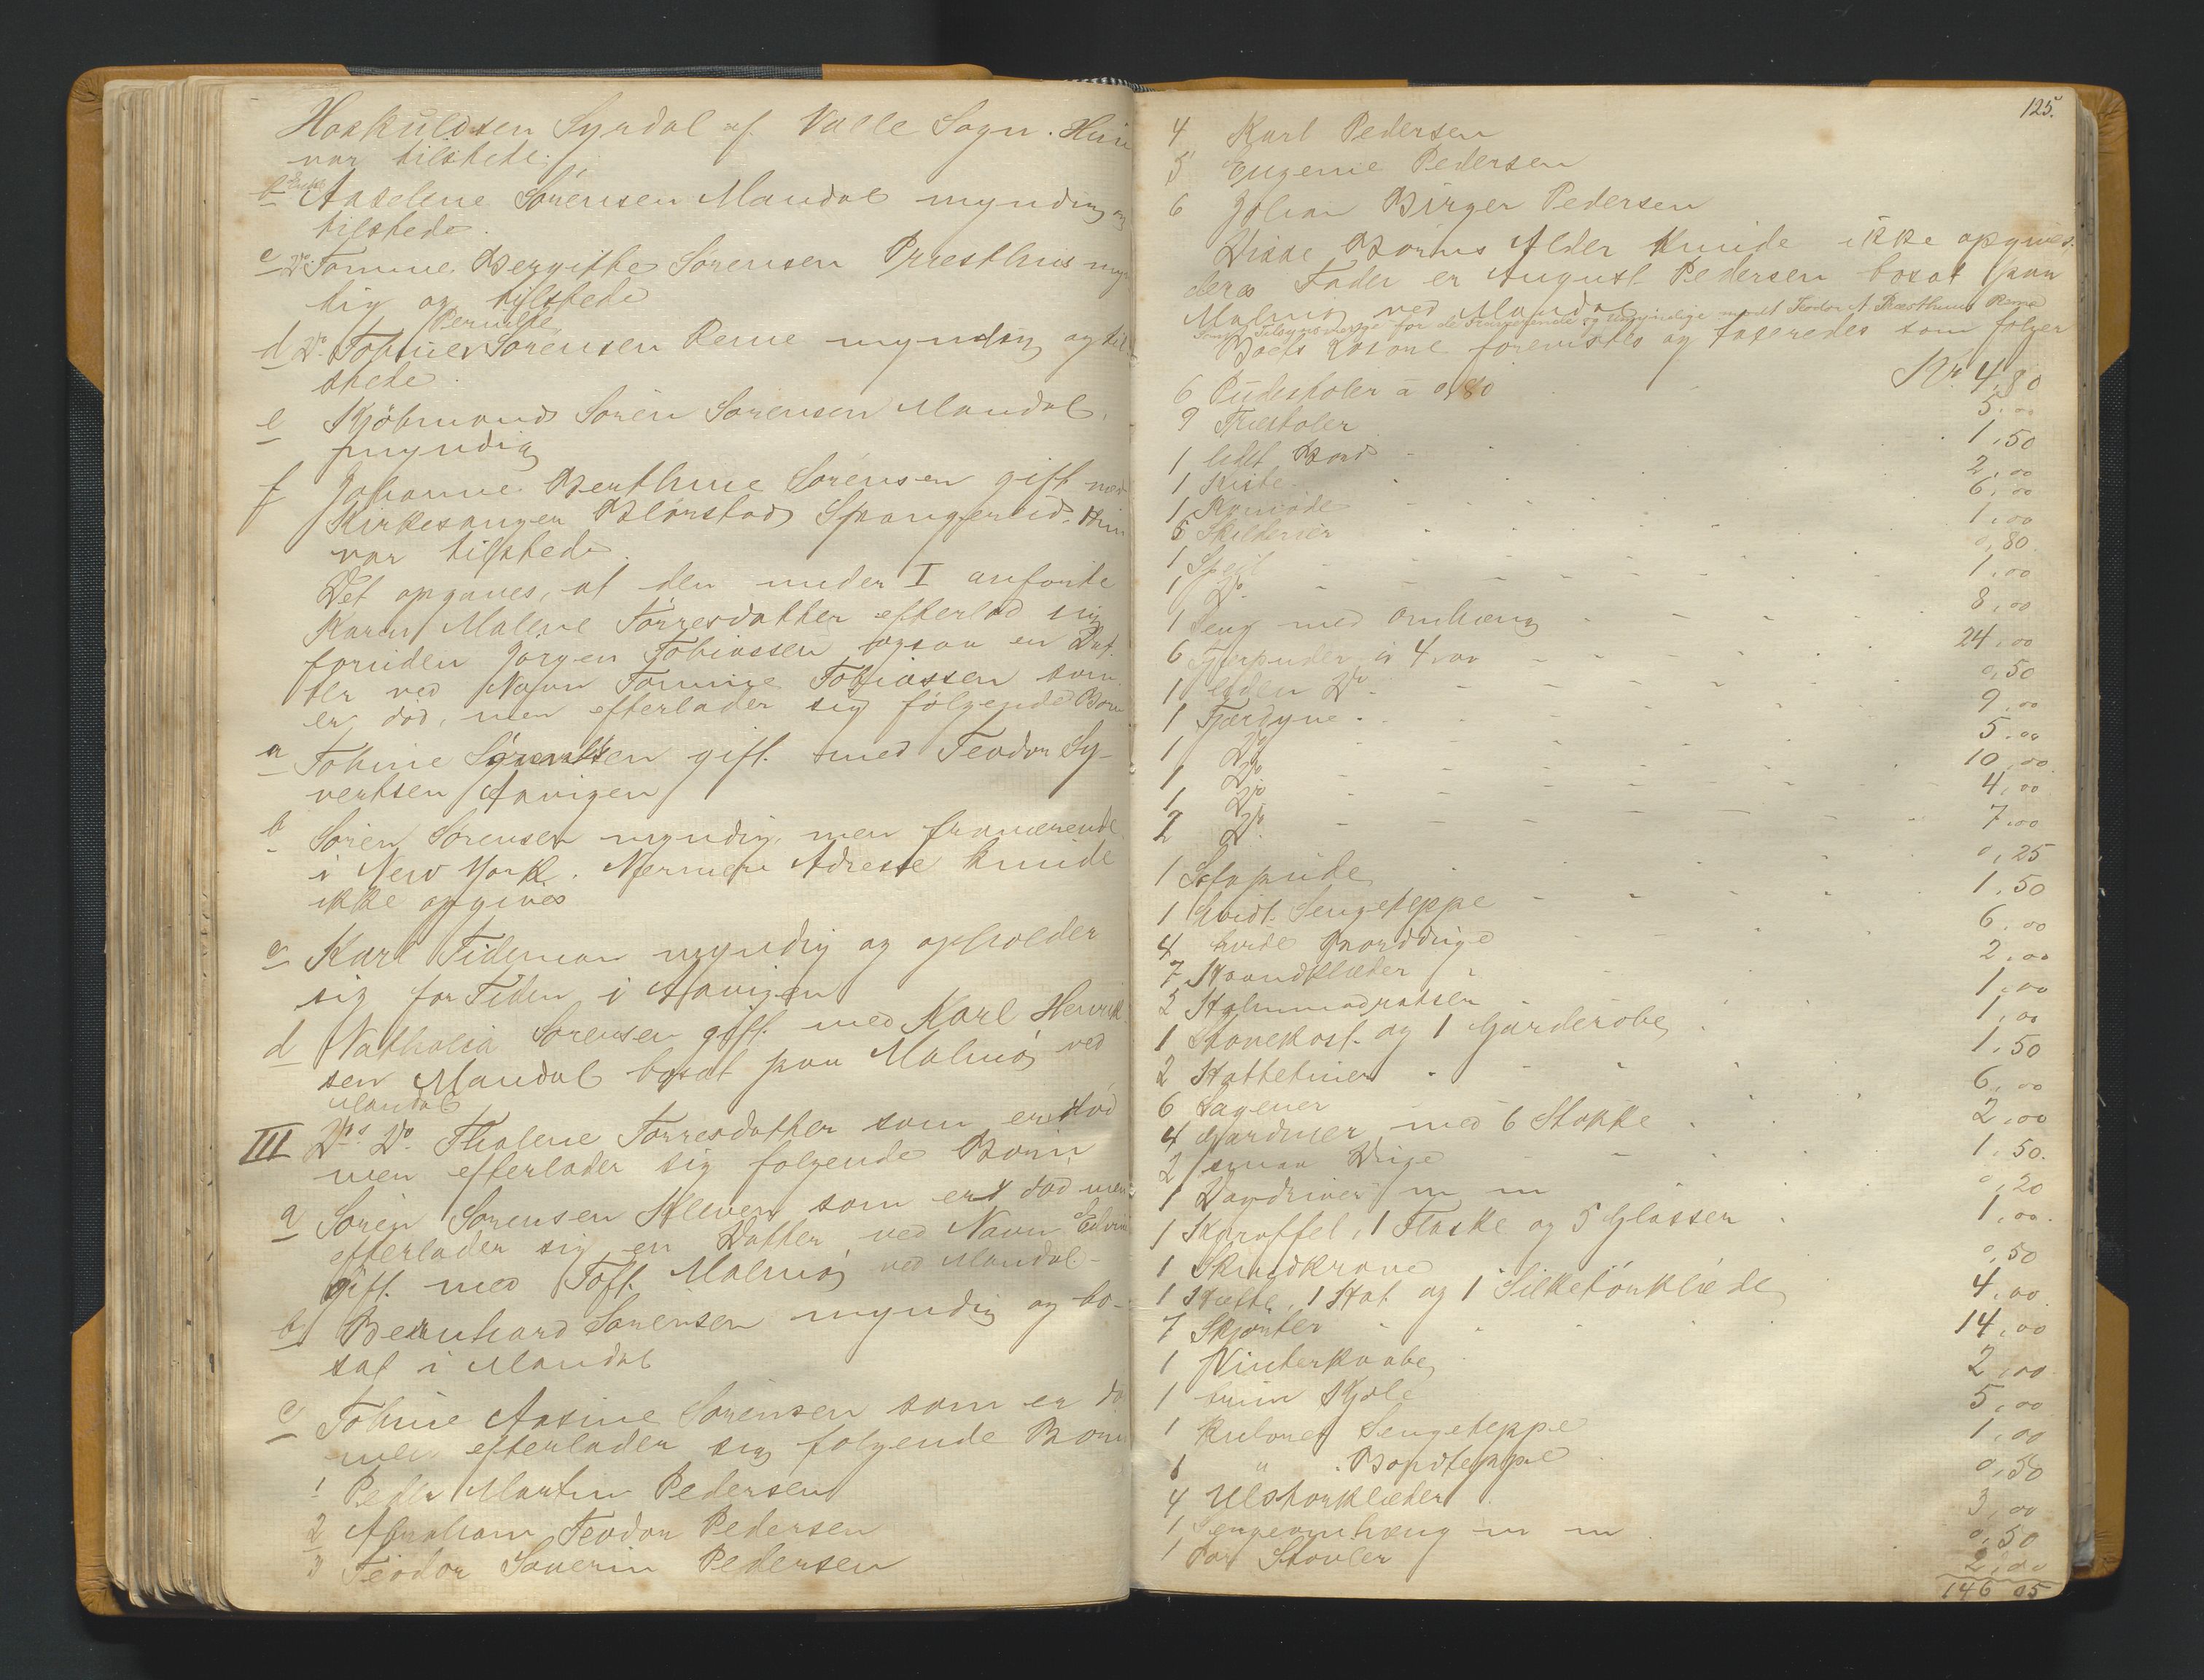 Haakuldsen Syrdal af Valle Sogn. Hun
var tilstede.
b Enke Aaselene Sörensen Mandal myndig og
tilstede.
c Do Tomine Bergithe Sörensen Præsthus myn
tig og tilstede
Pernille
d Do. Tobine Sörensen Reme myndig og til
stede.
e Kjöbmand Sören Sörensen Mandal,
myndig
f Johanne Berthine Sörensen gift med
Kirkesanger Blörstad Spangereid. Hun
var tilstede.
Det opgaves, at den under I anförte
Karen Malene Törresdatter efterlod sig
foruden Jörgen Tobiassen ogsaa en Dat
ter ved Navn Tomine Tobiassen som
er död, men efterlader sig fölgende Börn
a Tobine Sörensen gift med Teodor Sy-
vertsen Aavigen
b Sören Sörensen myndig, men fraværende
i New York. Nærmere Adresse kunde
ikke opgives
c Karl Tideman myndig og opholder
sig for Tiden i Aavigen
d Nathalia Sörensen gift med Karl Henrik
sen Mandal bosat paa Malmö ved
Mandal
III Ds Do. Thalene Törresdatter som er död
men efterlader sig fölgende Börn
a Sören Sörensen Kleven som er död men
efterlader sig en Datter ved Navn
gift med Toft Malmö ved Mandal-
b Bernhard Sörensen myndig og bo-
sat i Mandal
c Tobine Aasine Sörensen som er dö
men efterlader sig fölgende Börn
1 Peder Martin Pedersen
2 Abraham Teodor Pedersen
3 Teodor Severin Pedersen
125.
4 Karl Pedersen
5 Eugenie Pedersen
6 Johan Birger Pedersen
Disse Börns Alder kunde ikke opgives.
deres Fader er August Pedersen bosat paa
Malmö ved Mandal
Tilsynsværge for de Fraværende og Umyndige Teodor A Præsthuus Reme
Boets Lösöre forevistes og taxeredes som fölger
6 Pudestoler à 0,80 Kr. 4,80
9 Træstoler 5.00
1 lidet Bord 1,50
1 Kiste 2,00
1 Komode 6,00
5 Skilderier 1,00
1 Speil 0,80
1 Do. 1,00
1 Seng med Omhæng 8,00
6 Fjerpuder à 4,00 24,00
1 liden Do. 0,50
1 Fjærdyne 9,00
1 Do 5,00
1 Do 10,00
1 Do 4,00
2 Do. 7,00
1 Sofapude 0,25
1 hvidt Sengeteppe 1,50
4 hvide Borddüge 6,00
7 Haandklæder 2,00
2 Halmmadratser 1,00
1 Stovekost og 1 Garderobe 1,00
2 Hattetiner 1,50
6 Lagener 6,00
4 Gardiner med 6 Stokke 2,00
2 smaa Düge 1,50.
1 m m 0,20
1 Karaffel, 1 Flaske og 5 Glasser 1,00.
1 Skindkrave 0,50
1 Hætte, 1 Hat og 1 Silketörklæde 4,00
7 Skjorter 14,00
1 Vinterkaabe 2,00
1 brun Kjole 5,00
1 kulöret Sengeteppe 1,00
1 " Bordteppe 0,50
4 Ulstörklæder 3,00
1 Sengeomhæng m m 0,50
1 Par Stövler 2,00
146 05